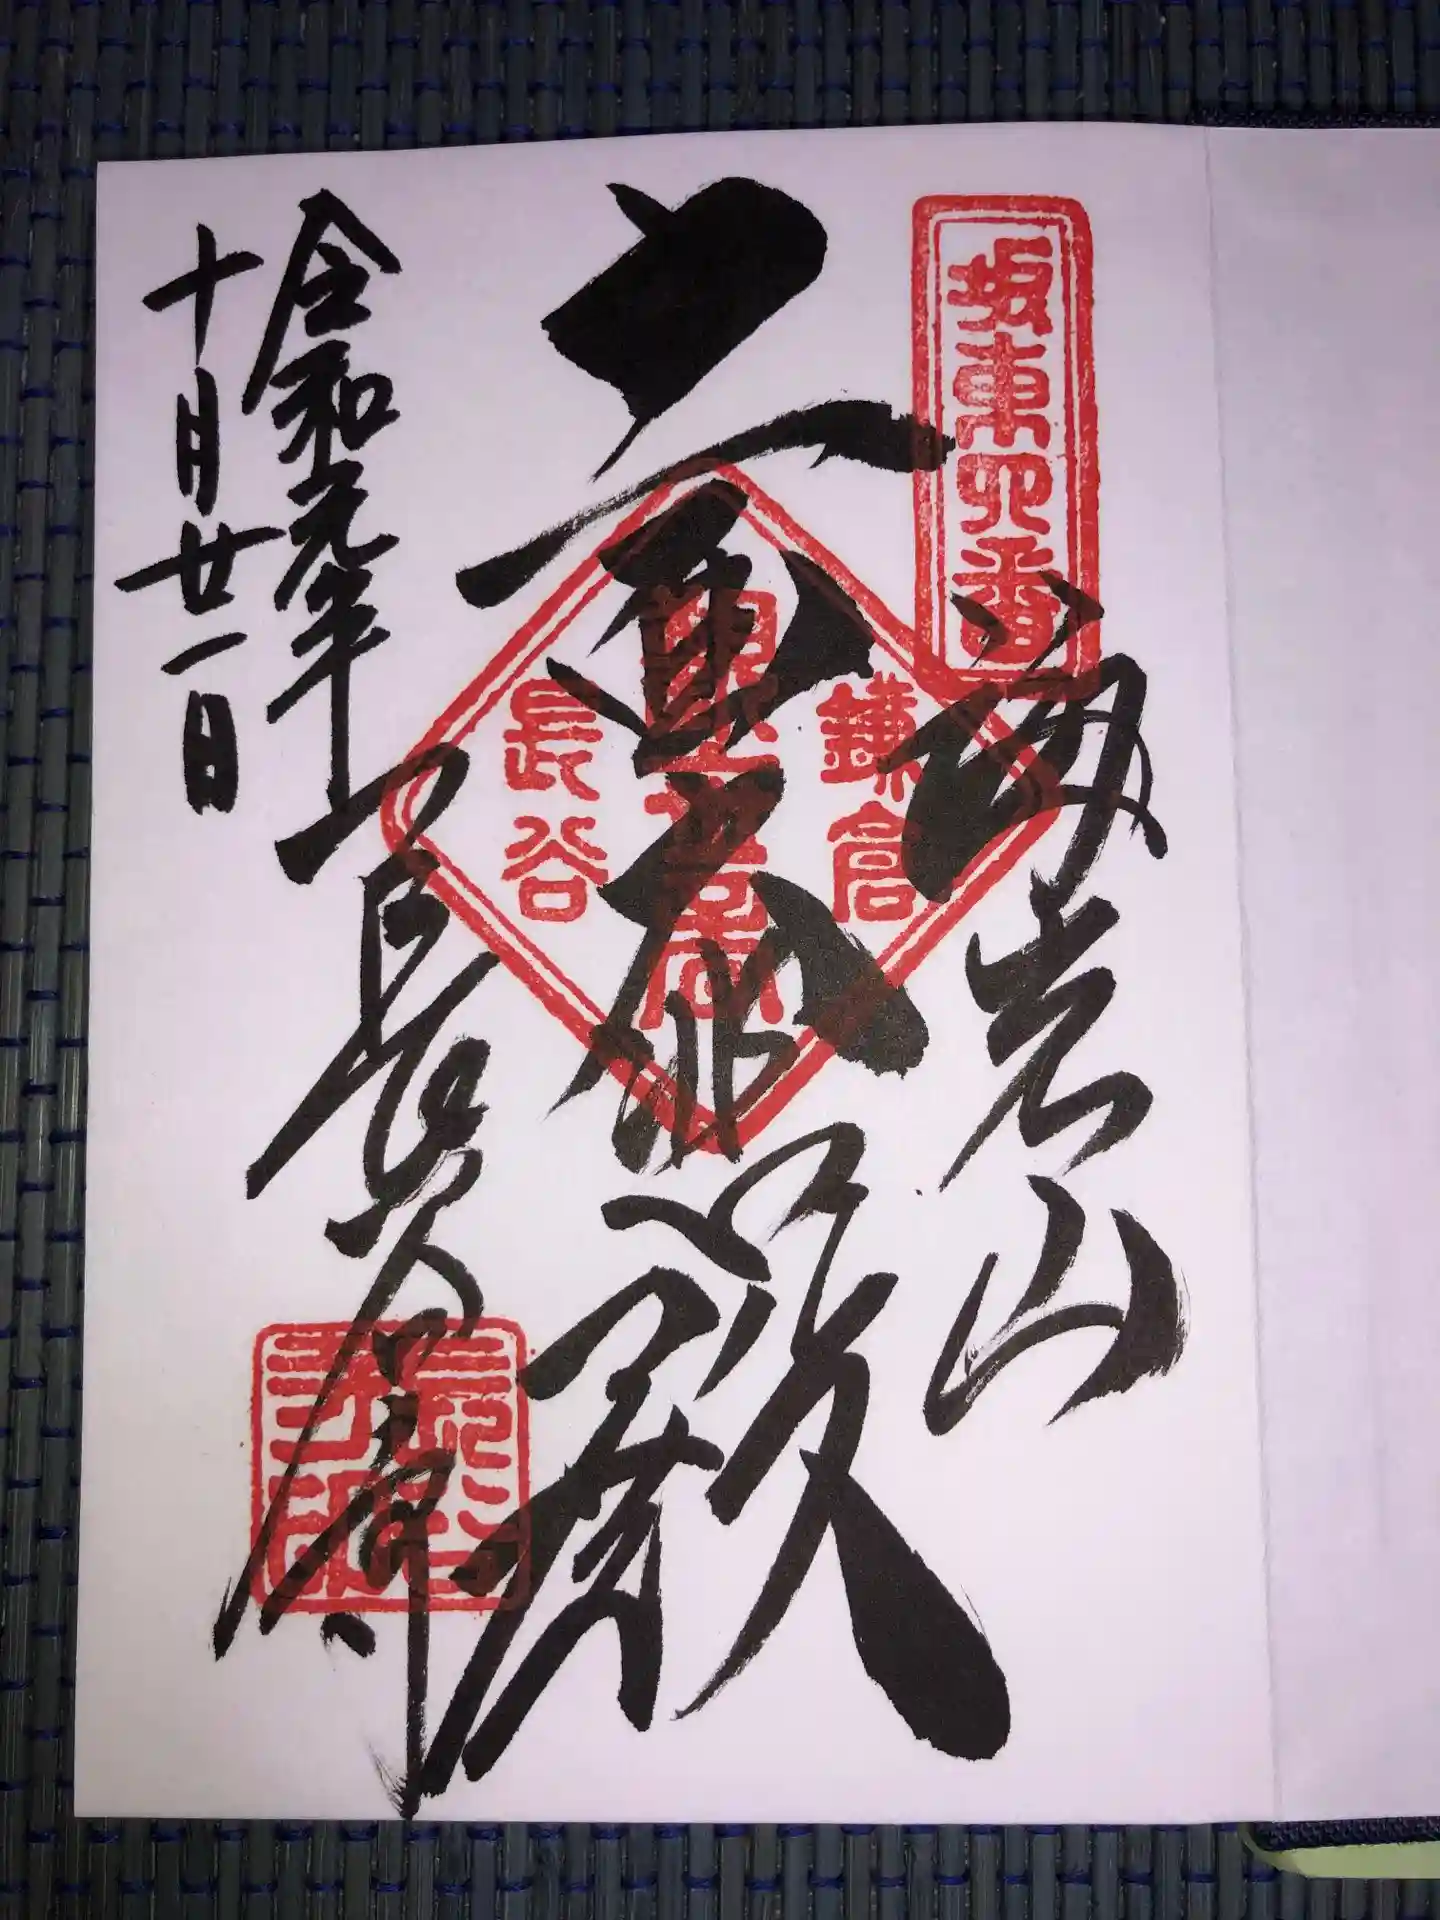 坂東四番
海光山
十一面大悲殿
鎌倉
長谷
令和元年
十月廿一日
長谷寺
長谷寺印